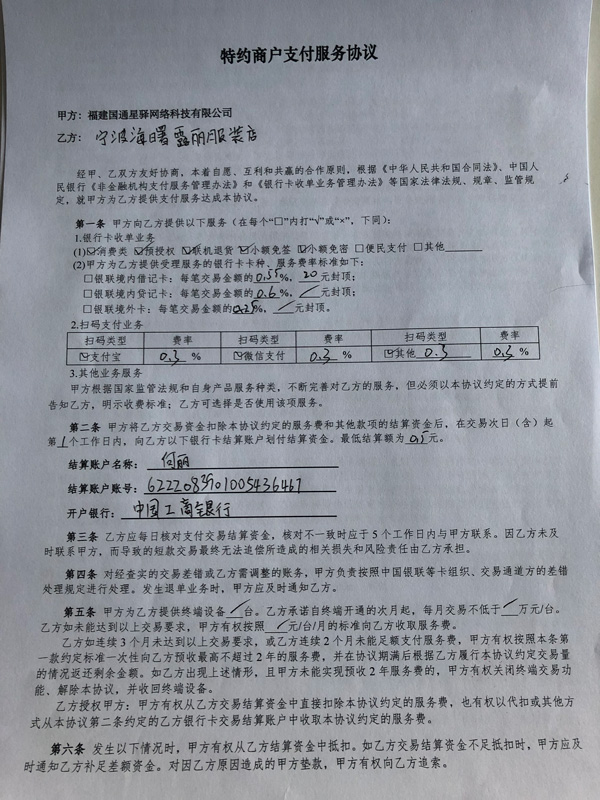 特约商户支付服务协议
甲方：福建国通星驿网络科技有限公司
乙方：宁波海曙露丽服装店
经甲、乙双方友好协商，本着自愿、互利和共赢的合作原则，根据《中华人民共和国合同法》、中国人
民银行《非金融机构支付服务管理办法》和《银行卡收单业务管理办法》等国家法律法规、规章、监管规
定，就甲方为乙方提供支付服务达成本协议。
第一条 甲方向乙方提供以下服务（在每个“□”内打“√”或“×”，下同）：
1.银行卡收单业务
(1)☑消费类 ☑预授权 ☑联机退货 ☑小额免签 ☑小额免密 □便民支付 □其他
(2)甲方为乙方提供受理服务的银行卡卡种、服务费率标准如下：
□银联境内借记卡：每笔交易金额的0.55%，20元封顶；
□银联境内贷记卡：每笔交易金额的0.6%，/元封顶；
□银联境外卡：每笔交易金额的%，/元封顶。
2.扫码支付业务
扫码类型 费率 扫码类型 费率 扫码类型 费率
☑支付宝 0.3 % ☑微信支付 0.3 % ☑其他 0.3 0.3 %
3.其他业务服务
甲方根据国家监管法规和自身产品服务种类，不断完善对乙方的服务，但必须以本协议约定的方式提前
告知乙方，明示收费标准；乙方可选择是否使用该项服务。
第二条 甲方将乙方交易资金扣除本协议约定的服务费和其他款项的结算资金后，在交易次日（含）起
第1个工作日内，向乙方以下银行卡结算账户划付结算资金。最低结算额为元。
结算账户名称：何丽
结算账户账号：6222083901005436467
开户银行：中国工商银行
第三条 乙方应每日核对支付交易结算资金，核对不一致时应于 5 个工作日内与甲方联系。因乙方未及
时联系甲方，而导致的短款交易最终无法追偿所造成的相关损失和风险责任由乙方承担。
第四条 对经查实的交易差错或乙方需调整的账务，甲方负责按照中国银联等卡组织、交易通道方的差错
处理规定进行处理。发生退单业务时，甲方应及时通知乙方。
第五条 甲方为乙方提供终端设备/台。乙方承诺自终端开通的次月起，每月交易不低于/万元/台。
乙方如未能达到以上交易要求，甲方有权按照/元/台/月的标准向乙方收取服务费。
乙方如连续 3 个月未达到以上交易要求，或乙方连续 2 个月未能足额支付服务费，甲方有权按照本条第
一款约定标准一次性向乙方预收最高不超过 2 年的服务费，并在协议期满后根据乙方履行本协议约定交易量
的情况返还剩余金额。如乙方出现上述情形，且甲方未能实现预收 2 年服务费的，甲方有权关闭终端交易功
能、解除本协议，并收回终端设备。
乙方授权甲方：甲方有权从乙方交易结算资金中直接扣除本协议约定的服务费，也有权以代扣或其他方
式从本协议第二条约定的乙方银行卡交易结算账户中收取本协议约定的服务费。
第六条 发生以下情况时，甲方有权从乙方结算资金中抵扣。如乙方交易结算资金不足抵扣时，甲方应及
时通知乙方补足差额资金。对因乙方原因造成的甲方垫款，甲方有权向乙方追索。